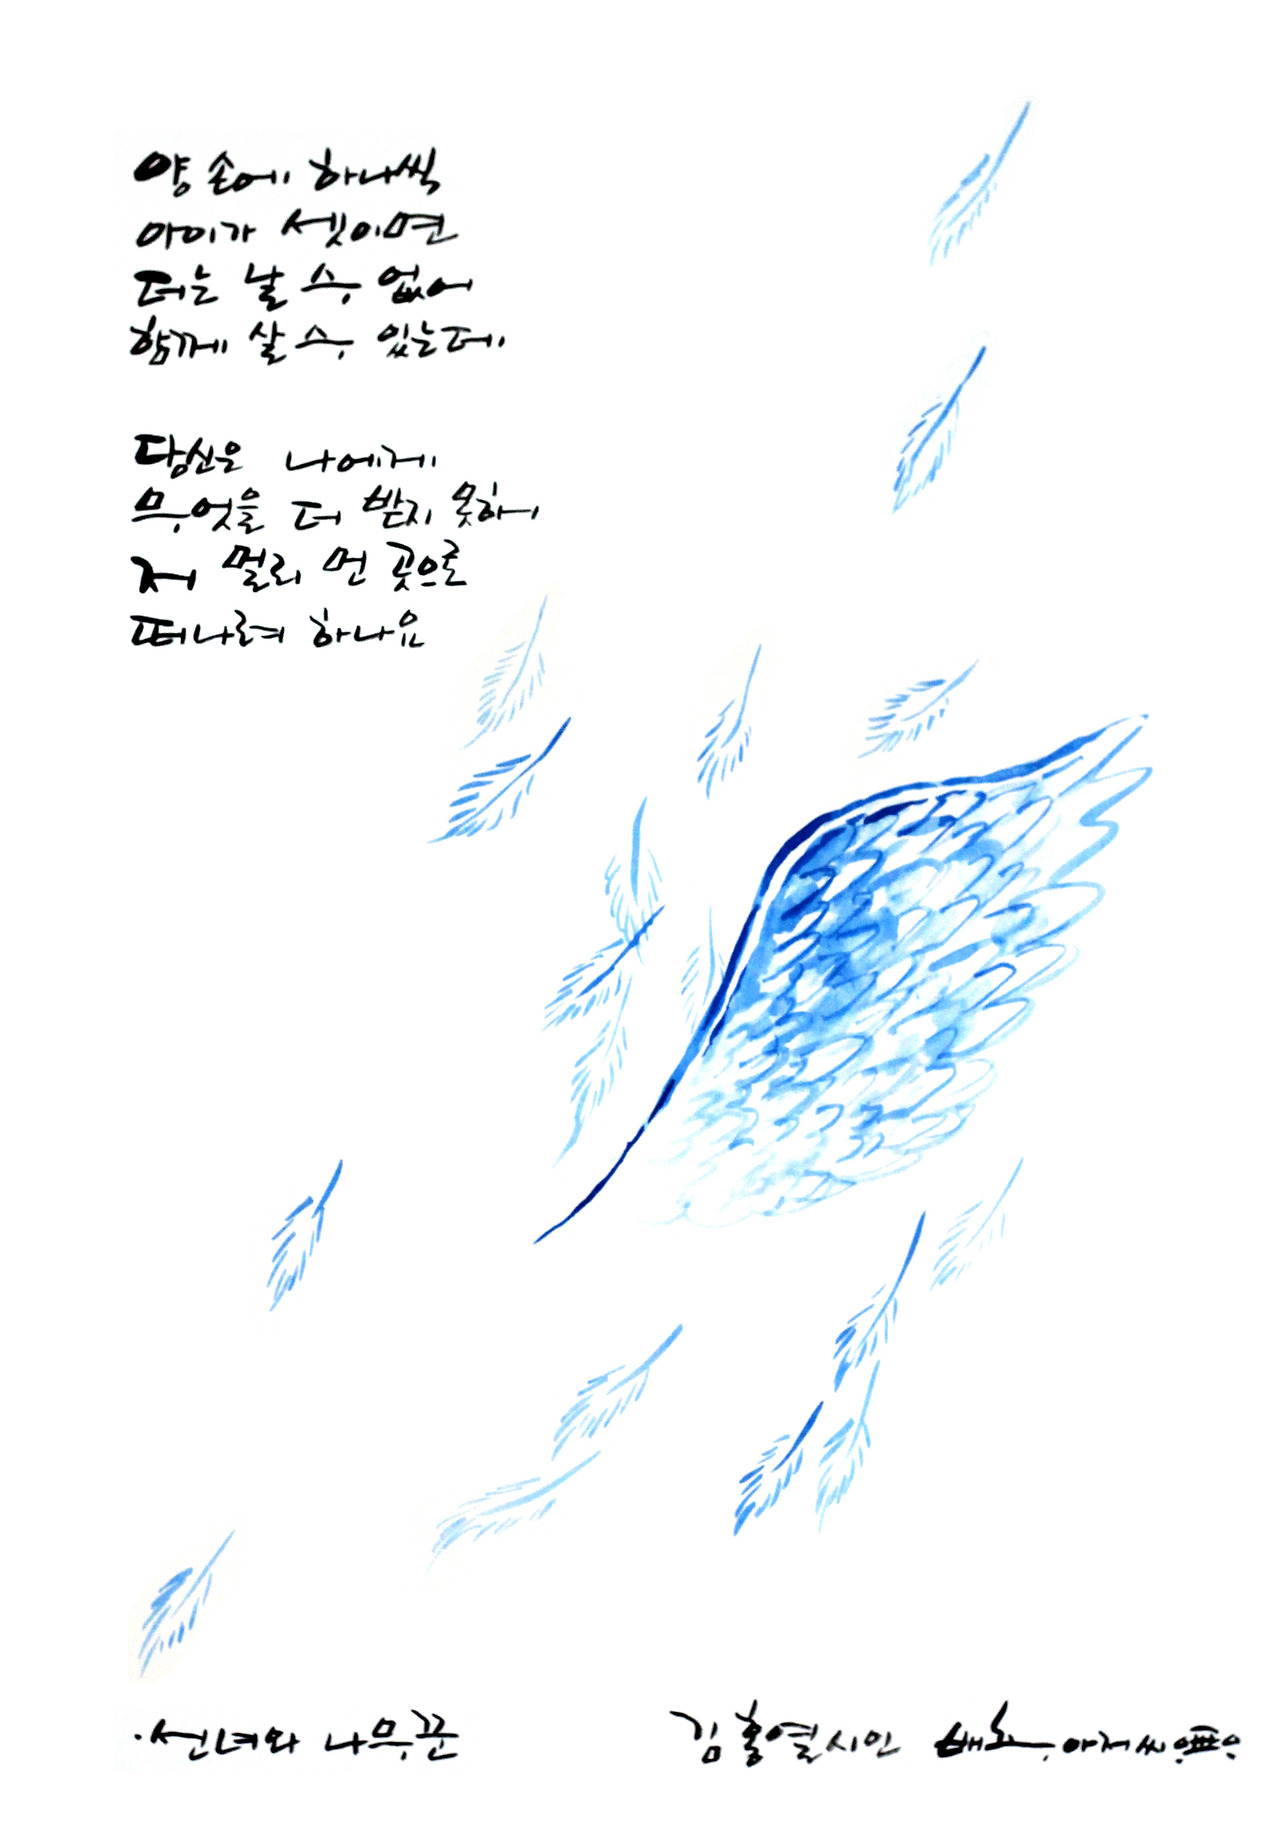 양 손에 하나씩
아이가 셋이면
더는 날 수 없어
함께 살 수 있는데.
당신은 나에게
무엇을 더 받지 못해
저 멀리 먼 곳으로
떠나려 하나요
·선녀와 나무꾼
김홍열시인 아저씨